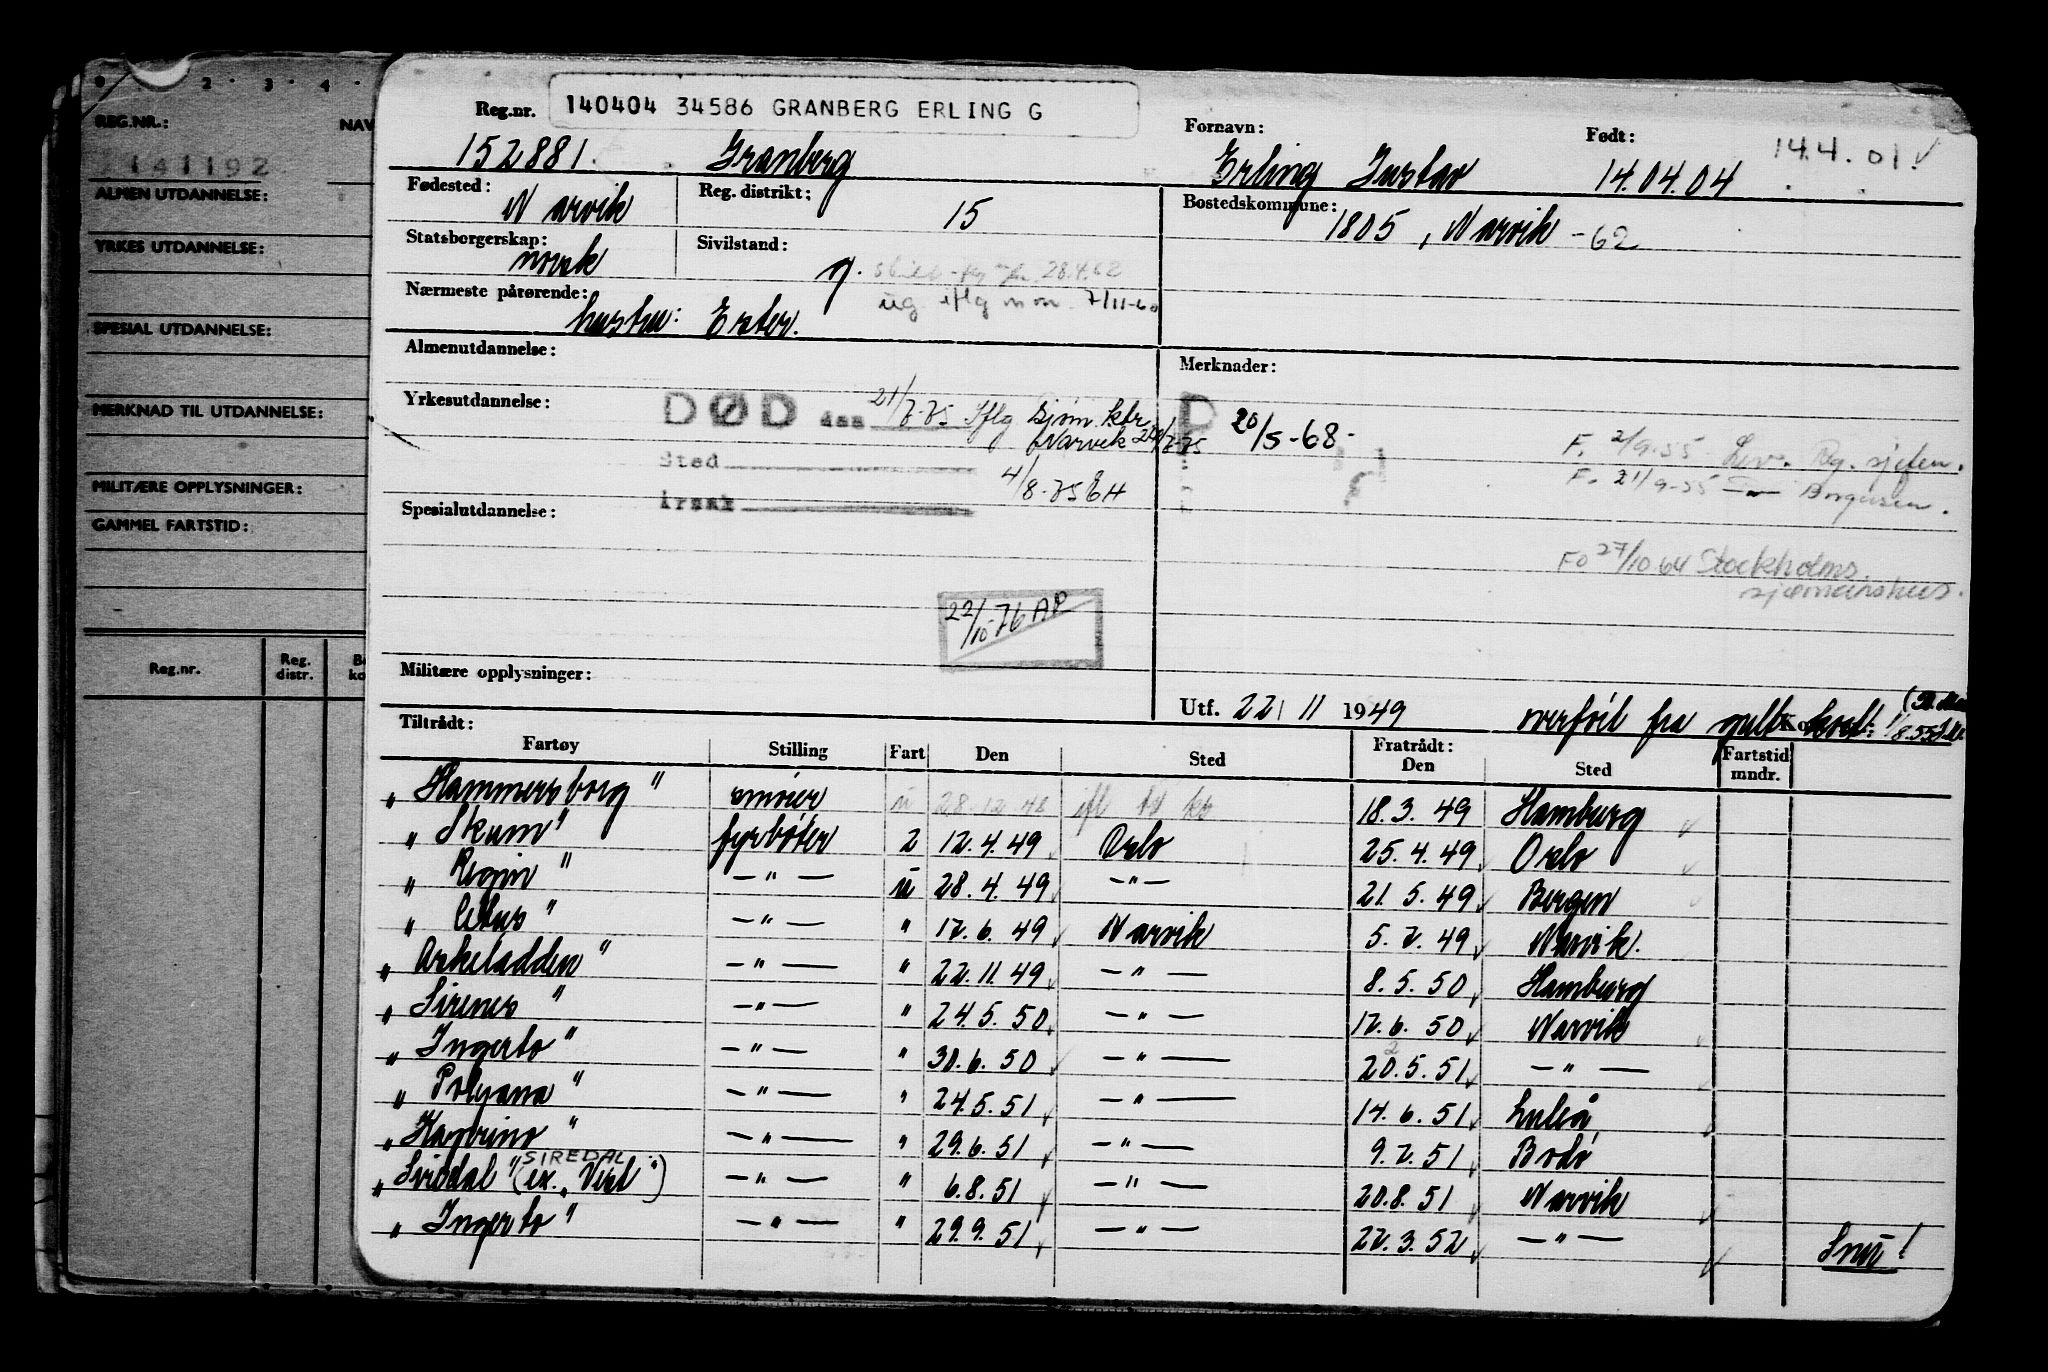 0 2 3 4
REG.NR.: NAV
141192
ALMEN UTDANNELSE:
YRKES UTDANNELSE:
SPESIAL UTDANNELSE:
MERKNAD TIL UTDANNELSE:
MILITÆRE OPPLYSNINGER:
GAMMEL FARTSTID:
Reg.nr. Reg. distr.
Reg.nr. 140404 34586 GRANBERG ERLING G
Fornavn: Født: 14.4.01
152881. Granberg Erling Gustav 14.04.04
Fødested: Narvik Reg. distrikt: 15 Bostedskommune: 1805, Narvik -62
Statsborgerskap: norsk Sivilstand: g. 28.4.62
ug iflg 7/11-60
Nærmeste pårørende: hustru: Ester.
Almenutdannelse: Merknader:
Yrkesutdannelse: DØD den 21/7-75 Iflg Sjøm. ktr
Narvik 7-75
Sted
4/8-75 EH
Årsak
20/5-68-
F. 2/9-55 Reg. sjefen.
F. 21/9-55 Borgersen.
FO 27/10 64 Stockholms
sjømanshus.
Spesialutdannelse:
22/10-76 AP
Militære opplysninger:
Utf. 22/11 1949 overført fra gult kort: 1/8.55
Tiltrådt: Fratrådt:
Fartøy Stilling Fart Den Sted Den Sted Fartstid mndr.
„Hammersborg" smører u 28.12.48 ifl 18.3.49 Hamburg
„Skum" fyrbøter 2 12.4.49 Oslo 25.4.49 Oslo
„Regin" — " — u 28.4.49 — " — 21.5.49 Bergen
" — " — " 17.6.49 Narvik 5.7.49 Narvik.
„Askeladden" — " — " 22.11.49 — " — 8.5.50 Hamburg
„Sirenes" — " — " 24.5.50 — " — 17.6.50 Narvik
„Ingerto" — " — " 30.6.50 — " — 20.5.51 — " —
„Polyana" — " — " 24.5.51 — " — 14.6.51 Luleå
" — " — " 29.6.51 — " — 9.7.51 Bodø
SIREDAL
„Siredal" (ex. „Vest") — " — " 6.8.51 — " — 20.8.51 Narvik
„Ingerto" — " — " 29.9.51 — " — 22.3.52 — " —
Snu!